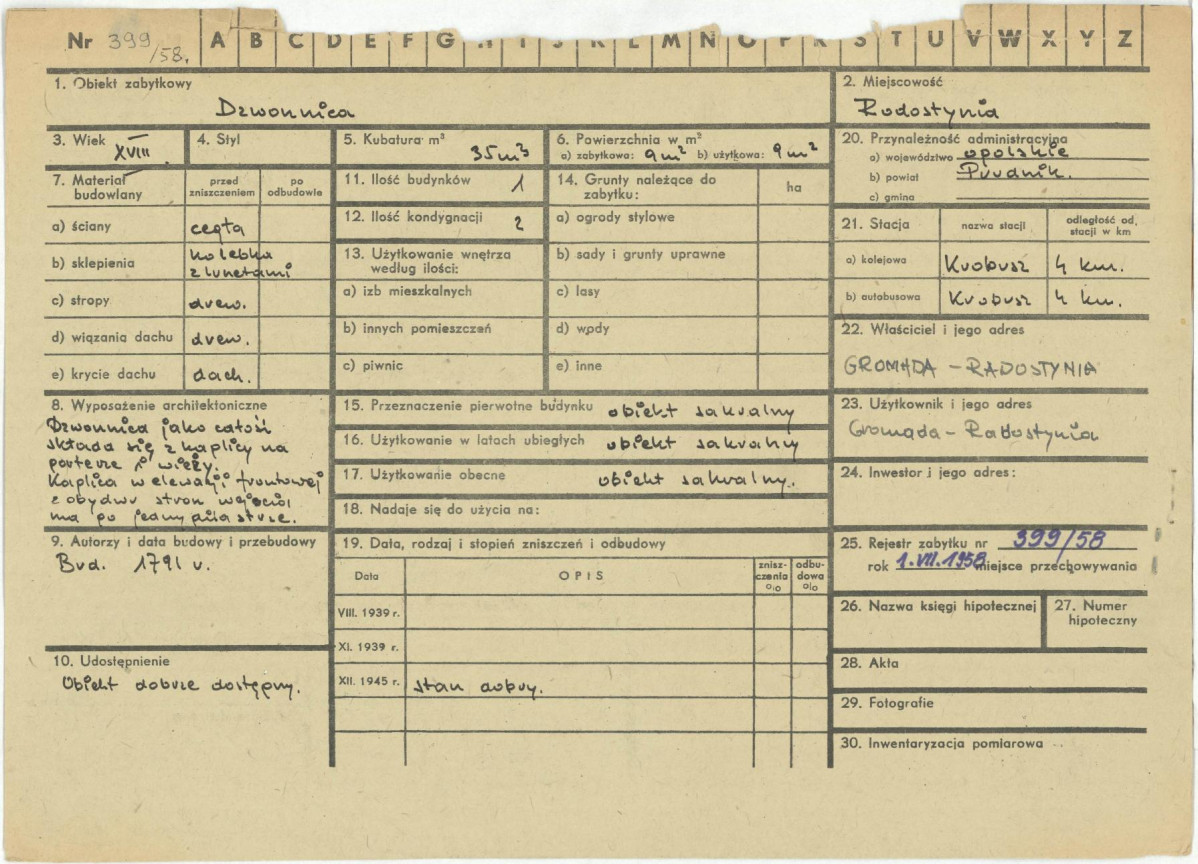 Nr 399/58.
A B C D E F G H I J K L M N O P R S T U V W X Y Z
1. Obiekt zabytkowy
Dzwonnica
2. Miejscowość
Radostynia
3. Wiek XVIII
4. Styl
5. Kubatura m³ 35m³
6. Powierzchnia w m²
a) zabytkowa: 9m² b) użytkowa: 9m²
20. Przynależność administracyjna
a) województwo opolskie
b) powiat Prudnik.
c) gmina
7. Materiał budowlany
przed zniszczeniem
po odbudowie
a) ściany cegła
b) sklepienia kolebka
z lunetami
c) stropy drew.
d) wiązania dachu drew.
e) krycie dachu dach.
11. Ilość budynków 1
12. Ilość kondygnacji 2
13. Użytkowanie wnętrza
według ilości:
a) izb mieszkalnych
b) innych pomieszczeń
c) piwnic
14. Grunty należące do
zabytku:
ha
a) ogrody stylowe
b) sady i grunty uprawne
c) lasy
d) wody
e) inne
21. Stacja
nazwa stacji
odległość od.
stacji w km
a) kolejowa Krobusz 4 km.
b) autobusowa Krobusz 4 km.
22. Właściciel i jego adres
GROMADA - RADOSTYNIA
8. Wyposażenie architektoniczne
Dzwonnica jako całość
składa się z kaplicy na
parterze i wieży.
Kaplica w elewacji frontowej
z obydwu stron wejścia
ma po jednym pilastrze.
15. Przeznaczenie pierwotne budynku obiekt sakralny
16. Użytkowanie w latach ubiegłych obiekt sakralny
17. Użytkowanie obecne obiekt sakralny.
18. Nadaje się do użycia na:
23. Użytkownik i jego adres
Gromada - Radostynia
24. Inwestor i jego adres:
9. Autorzy i data budowy i przebudowy
Bud. 1791 r.
19. Data, rodzaj i stopień zniszczeń i odbudowy
Data
OPIS
znisz-
czenia
o/o
odbu-
dowa
o/o
VIII. 1939 r.
XI. 1939 r.
XII. 1945 r. stan dobry.
25. Rejestr zabytku nr 399/58
rok 1.VII.1958 miejsce przechowywania
26. Nazwa księgi hipotecznej
27. Numer
hipoteczny
10. Udostępnienie
Obiekt dobrze dostępny.
28. Akta
29. Fotografie
30. Inwentaryzacja pomiarowa